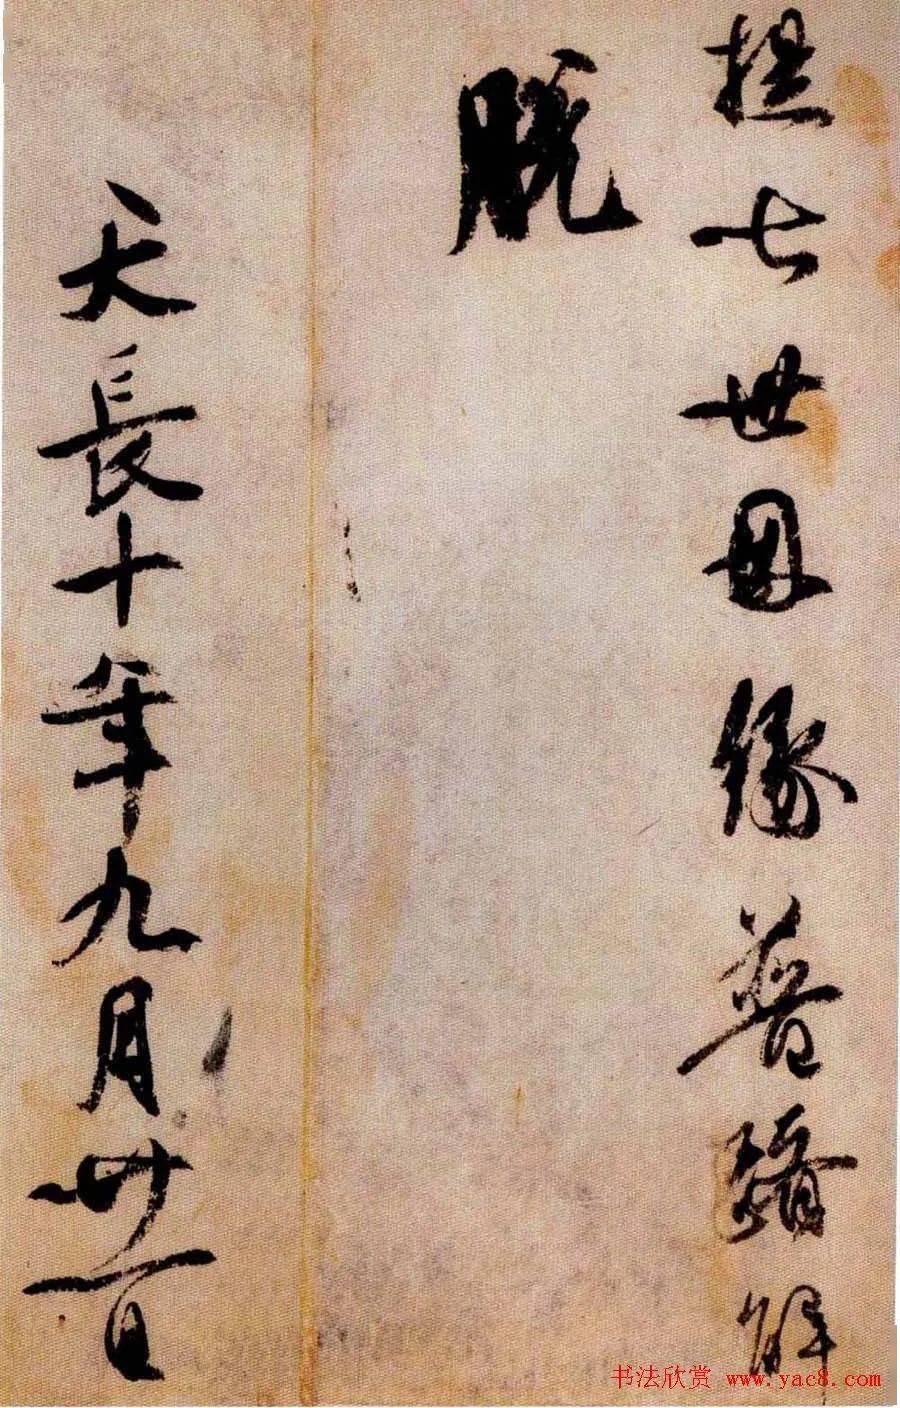 提七世母緣普躋解
脱
天長十年九月廿一日
书法欣赏 www.yac8.com